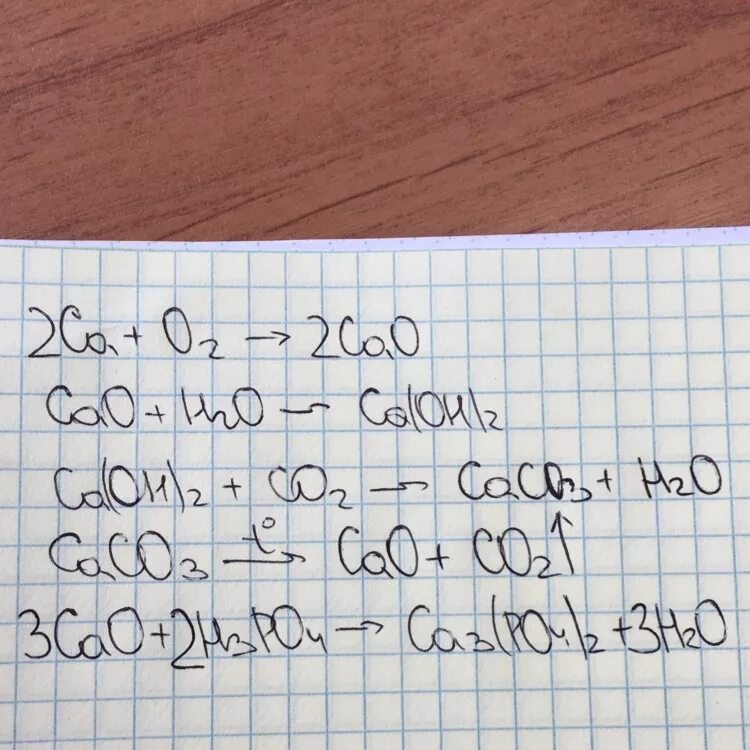 2Ca + O₂ → 2CaO
CaO + H₂O → Ca(OH)₂
Ca(OH)₂ + CO₂ → CaCO₃ + H₂O
CaCO₃ t° → CaO + CO₂↑
3CaO + 2H₃PO₄ → Ca₃(PO₄)₂ + 3H₂O